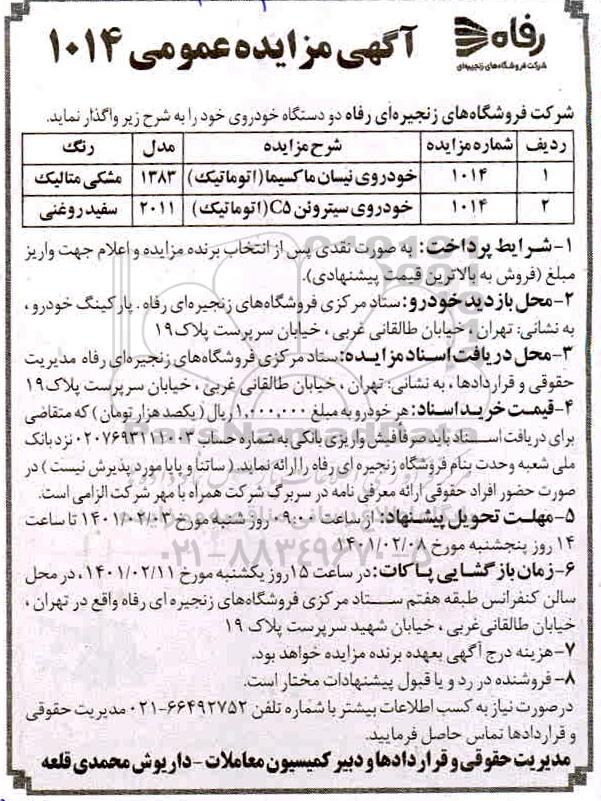 رفاه
شرکت فروشگاه‌های زنجیره‌ای
آگهی مزایده عمومی ۱۰۱۴
شرکت فروشگاه‌های زنجیره‌ای رفاه دو دستگاه خودروی خود را به شرح زیر واگذار نماید.
ردیف شماره مزایده شرح مزایده مدل رنگ
۱ ۱۰۱۴ خودروی نیسان ماکسیما (اتوماتیک) ۱۳۸۳ مشکی متالیک
۲ ۱۰۱۴ خودروی سیتروئن C۵ (اتوماتیک) ۲۰۱۱ سفید روغنی
۱- شرایط پرداخت: به صورت نقدی پس از انتخاب برنده مزایده و اعلام جهت واریز
مبلغ (فروش به بالاترین قیمت پیشنهادی).
۲- محل بازدید خودرو: ستاد مرکزی فروشگاه‌های زنجیره‌ای رفاه . پارکینگ خودرو ،
به نشانی: تهران ، خیابان طالقانی غربی ، خیابان سرپرست پلاک ۱۹
۳- محل دریافت اسناد مزایده: ستاد مرکزی فروشگاه‌های زنجیره‌ای رفاه مدیریت
حقوقی و قراردادها ، به نشانی: تهران ، خیابان طالقانی غربی ، خیابان سرپرست پلاک ۱۹
۴- قیمت خرید اسناد: هر خودرو به مبلغ ۱,۰۰۰,۰۰۰ ریال ( یکصد هزار تومان ) که متقاضی
برای دریافت اسناد باید صرفا فیش واریزی بانکی به شماره حساب ۰۲۰۷۶۹۳۱۱۱۰۰۳ نزد بانک
ملی شعبه وحدت بنام فروشگاه زنجیره ای رفاه را ارائه نماید. ( ساتنا و پایا مورد پذیرش نیست ) در
صورت حضور افراد حقوقی ارائه معرفی نامه در سربرگ شرکت همراه با مهر شرکت الزامی است.
۵- مهلت تحویل پیشنهاد: از ساعت ۰۹:۰۰ روز شنبه مورخ ۱۴۰۱/۰۲/۰۳ تا ساعت
۱۴ روز پنجشنبه مورخ ۱۴۰۱/۰۲/۰۸
۶- زمان بازگشایی پاکات: در ساعت ۱۵ روز یکشنبه مورخ ۱۴۰۱/۰۲/۱۱ ، در محل
سالن کنفرانس طبقه هفتم ستاد مرکزی فروشگاه‌های زنجیره ای رفاه واقع در تهران ،
خیابان طالقانی غربی ، خیابان شهید سرپرست پلاک ۱۹
۷- هزینه درج آگهی بعهده برنده مزایده خواهد بود.
۸- فروشنده در رد و یا قبول پیشنهادات مختار است.
درصورت نیاز به کسب اطلاعات بیشتر با شماره تلفن ۶۶۴۹۲۷۵۲-۰۲۱ مدیریت حقوقی
و قراردادها تماس حاصل فرمایید.
مدیریت حقوقی و قراردادها و دبیر کمیسیون معاملات - داریوش محمدی قلعه
ParsNamadData
۰۲۱-۸۸۳۴۹۶۷۰-۵